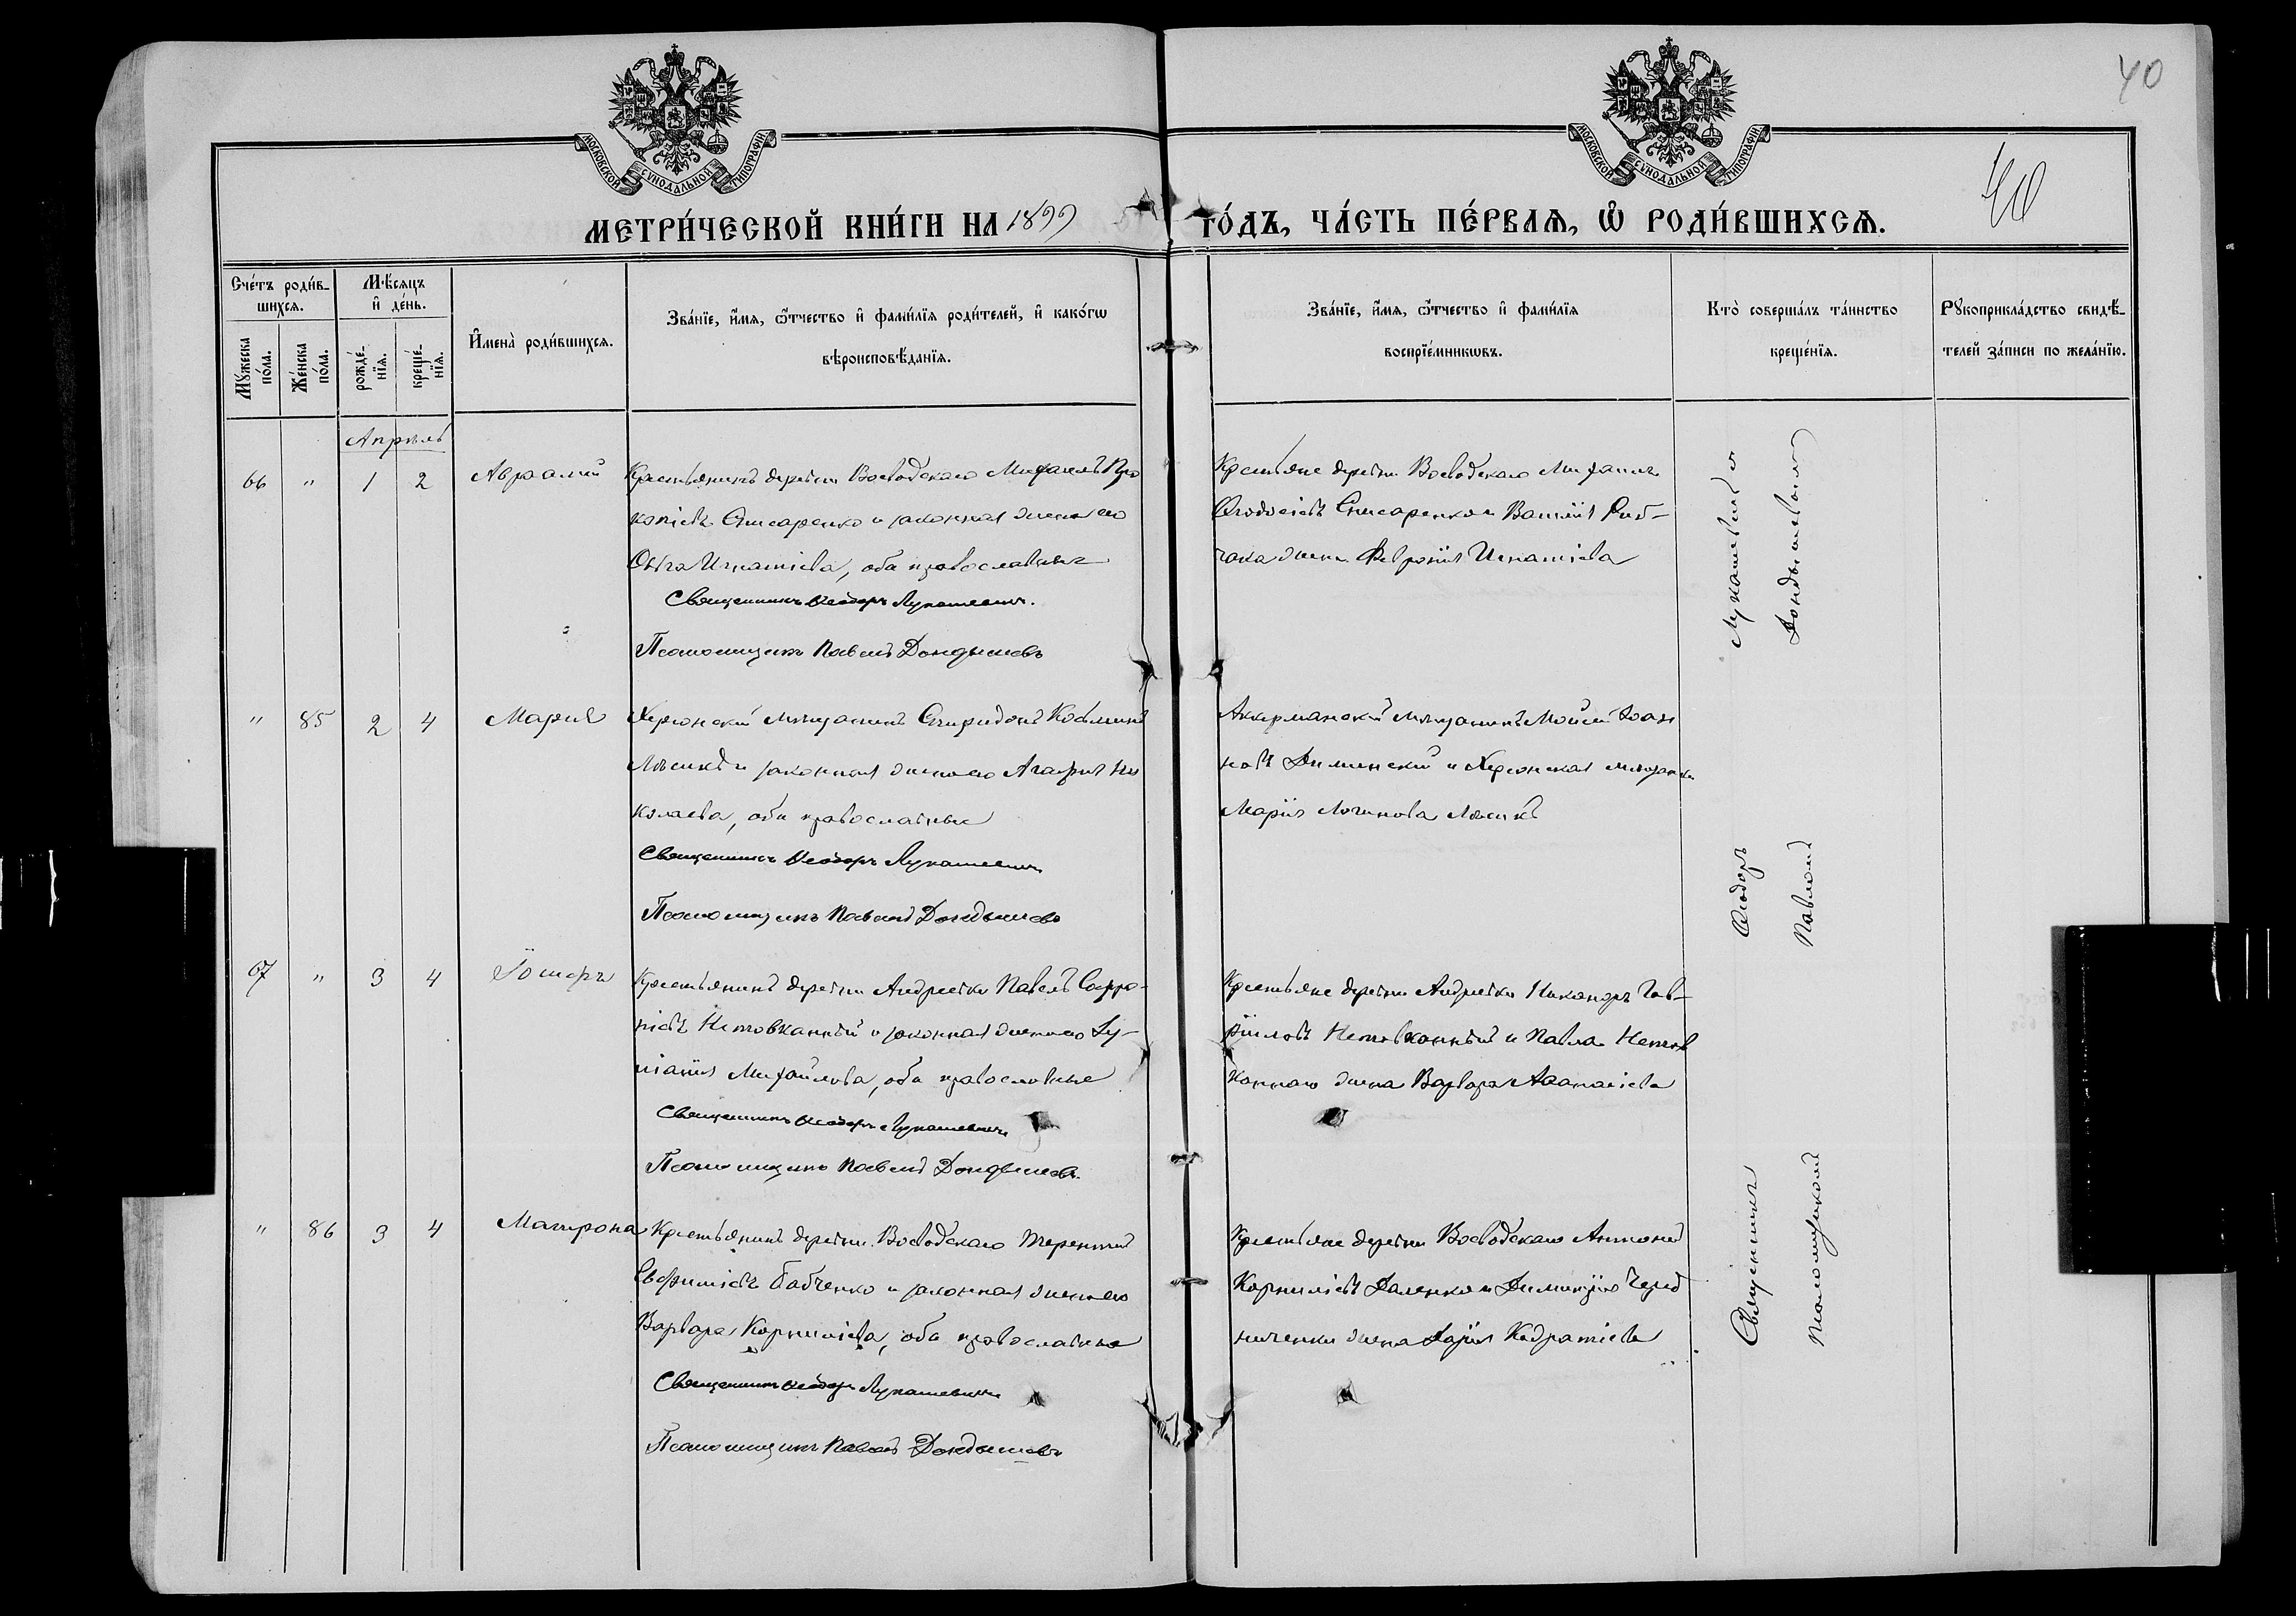 40
40
МОСКОВСКОЙ СѴНОДАЛЬНОЙ ТИПОГРАФІИ
МОСКОВСКОЙ СѴНОДАЛЬНОЙ ТИПОГРАФІИ
МЕТРИ́ЧЕСКОЙ КНИ́ГИ НА 1899 ГО́ДЪ, ЧА́СТЬ ПЕ́РВАѦ, Ѡ РОДИ́ВШИХСѦ.
Сче́тъ роди́в-
шихсѧ.
Мѣ́сѧцъ
и де́нь.
Мꙋ́жеска по́ла.
Же́нска по́ла.
рожде́-нїѧ.
креще́-нїѧ.
И҆мена̀ роди́вшихсѧ.
Зва́нїе, и҆́мѧ, ѻ҆́тчество и҆ фами́лїѧ роди́телей, и҆ како́гѡ
вѣроисповѣ́данїѧ.
Зва́нїе, и҆́мѧ, ѻ҆́тчество и҆ фами́лїѧ
воспрїе́мникѡвъ.
Кто̀ соверша́лъ та́инство
креще́нїѧ.
Рꙋкоприкла́дство свидѣ́-
телей за́писи по жела́нїю.
Апрѣль
66 " 1 2 Авраамій
Крестьянинъ деревни Воеводскаго Михаилъ Про
копіевъ Слисаренко и законная жена его
Игнатіева, оба православные
Священникъ Ѳеодоръ Лукашевичъ.
Псаломщикъ Павелъ Дондышевъ
Крестьяне деревни Воеводскаго Михаилъ
Ѳеодосіевъ Слисаренко и
жена Февронія Игнатіева
" 85 2 4 Марія
Херсонскій мѣщанинъ Спиридонъ Косьминъ
и законная жена его Агафія Ни
колаева, оба православные
Священникъ Ѳеодоръ Лукашевичъ
Псаломщикъ Павелъ Дондышевъ
Аккерманскій мѣщанинъ Моисей Іоан
новъ и Херсонская мѣщанка
Марія Логинова
67 " 3 4
Крестьянинъ деревни Андреевки Павелъ Софро-
ніевъ Нетовканный и законная жена его Ев-
Михайлова, оба православные
Священникъ Ѳеодоръ Лукашевичъ
Псаломщикъ Павелъ Дондышевъ.
Крестьяне деревни Андреевки Никаноръ Гав-
ріиловъ Нетовканный и Павла Нетов
каннаго жена Варвара Аѳанасіева
" 86 3 4 Матрона
Крестьянинъ деревни Воеводскаго Терентій
Евфиміевъ Бабченко и законная жена его
Варвара Корниліева, оба православные
Священникъ Ѳеодоръ Лукашевичъ
Псаломщикъ Павелъ Дондышевъ
Крестьяне деревни Воеводскаго Антоній
Корниліевъ и Димитрія Черед
ниченки жена Дарія Кодратіева
Священникъ Ѳеодоръ Лукашевичъ и
Псаломщикомъ Павломъ Дондышевымъ